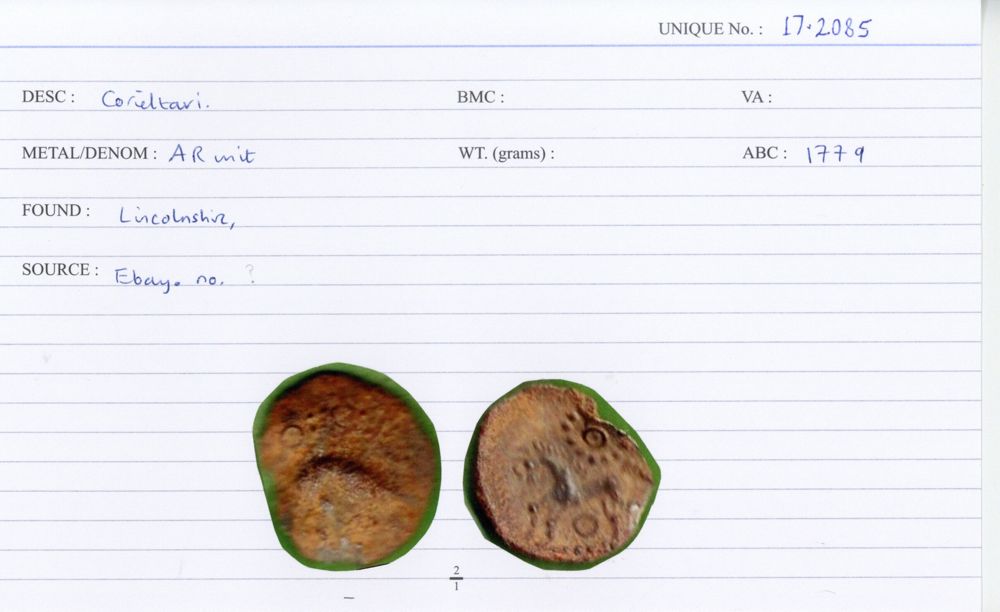 UNIQUE No. : 17.2085
DESC : Corieltavi. BMC : VA :
METAL/DENOM : AR unit WT. (grams) : ABC : 1779
FOUND : Lincolnshire,
SOURCE : Ebay. no. ?
2
1